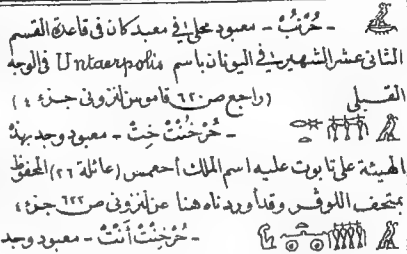 - حُرْنُبْ - معبود محلي في معبد كان في قاعدة القسم
الثاني عشر الشهير في اليونان باسم Untaerpolis في الوجه
القبلي (راجع ص ٦٢٠ قاموس لنزوني جزء ٤)
- حُرْخَنْتْ خِتْ - معبود وجد بهذه
الهيئة على تابوت عليه اسم الملك أحعمس (عائلة ٢٦) المحفوظ
بمتحف اللوڤر وقد أوردناه هنا عن لنزوني ص ٦٢٢ جزء ٤
- حُرْخِنْتْ أَنْتْ - معبود وجد